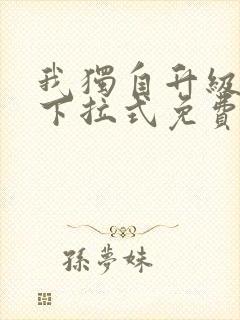 我獨自升級
下拉式免費
孫夢妹